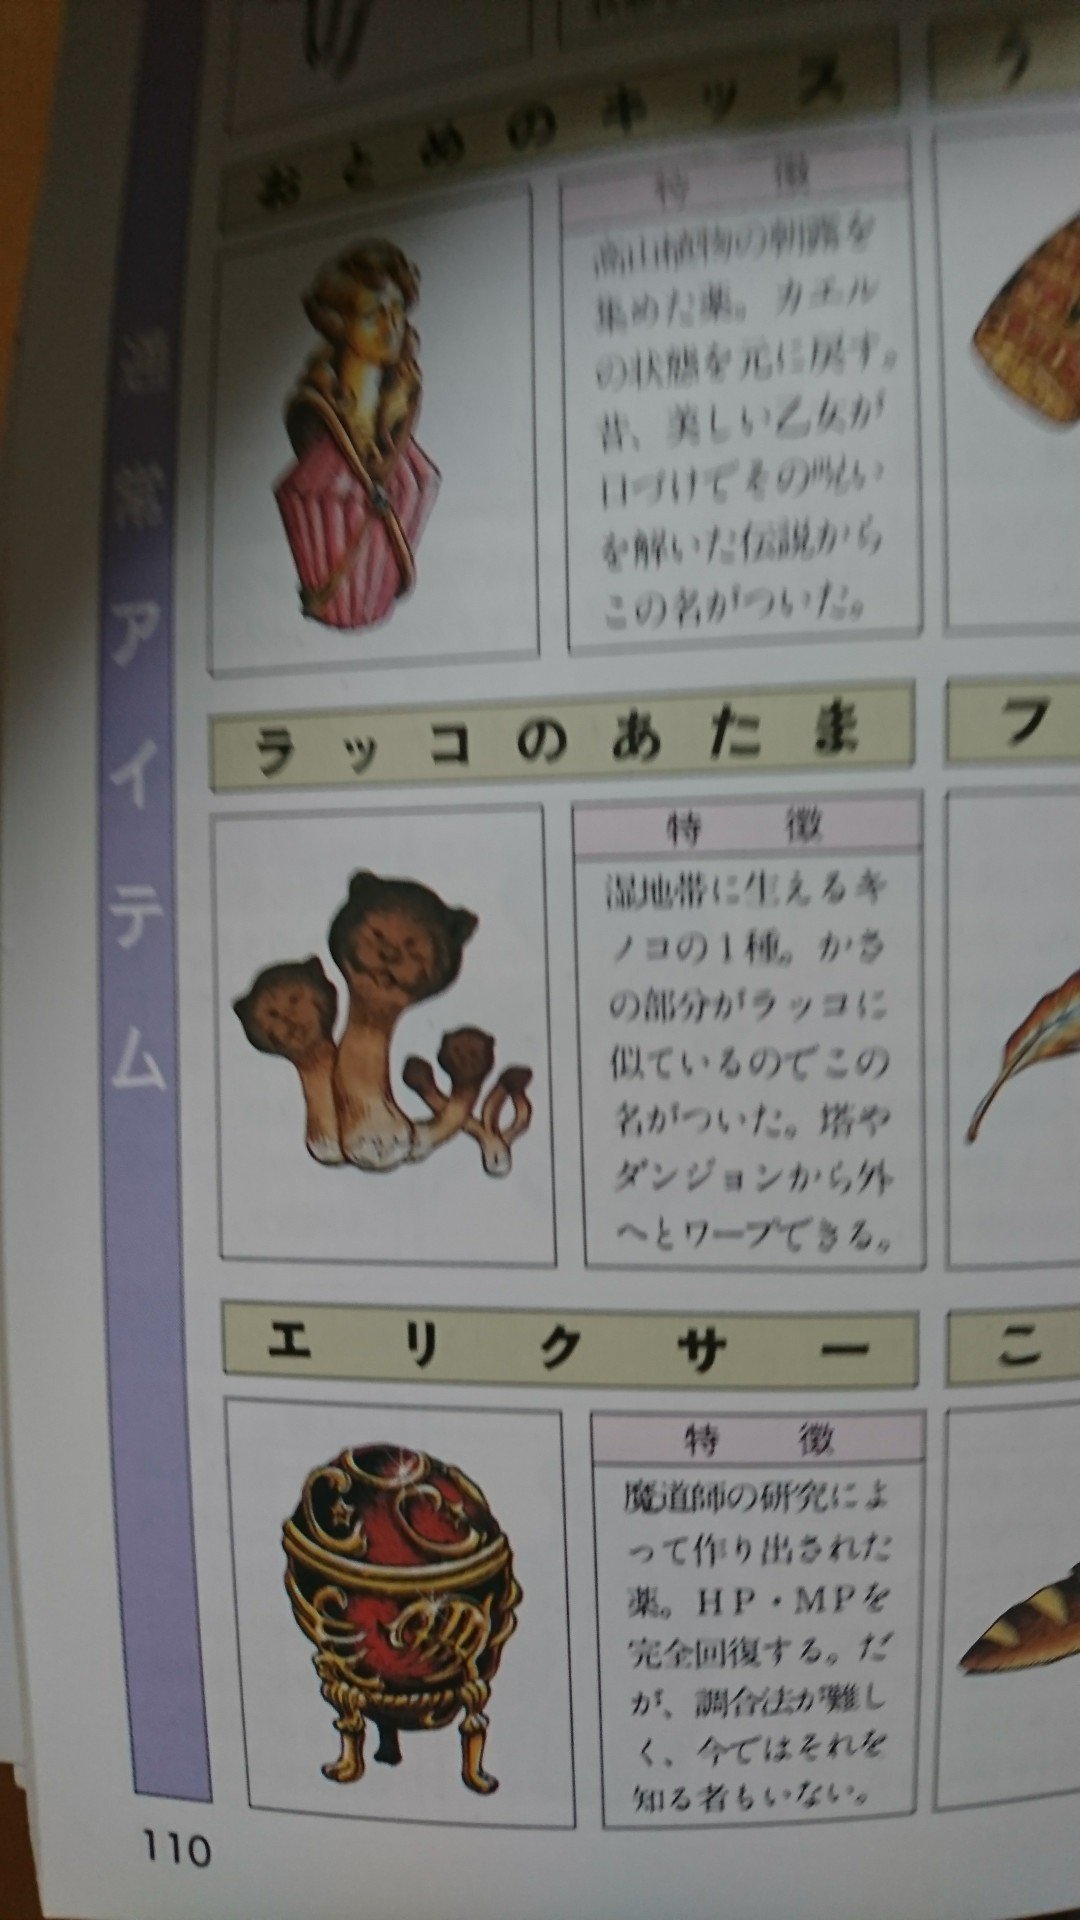 おとめのキッス
特徴
高山植物の朝露を
集めた薬。カエル
の状態を元に戻す。
昔、美しい乙女が
口づけでその呪い
を解いた伝説から
この名がついた。
ラッコのあたま
フ
特徴
湿地帯に生えるキ
ノコの1種。かさ
の部分がラッコに
似ているのでこの
名がついた。塔や
ダンジョンから外
へとワープできる。
エリクサー
こ
特徴
魔道師の研究によ
って作り出された
薬。HP・MPを
完全回復する。だ
が、調合法が難し
く、今ではそれを
知る者もいない。
アイテム
110